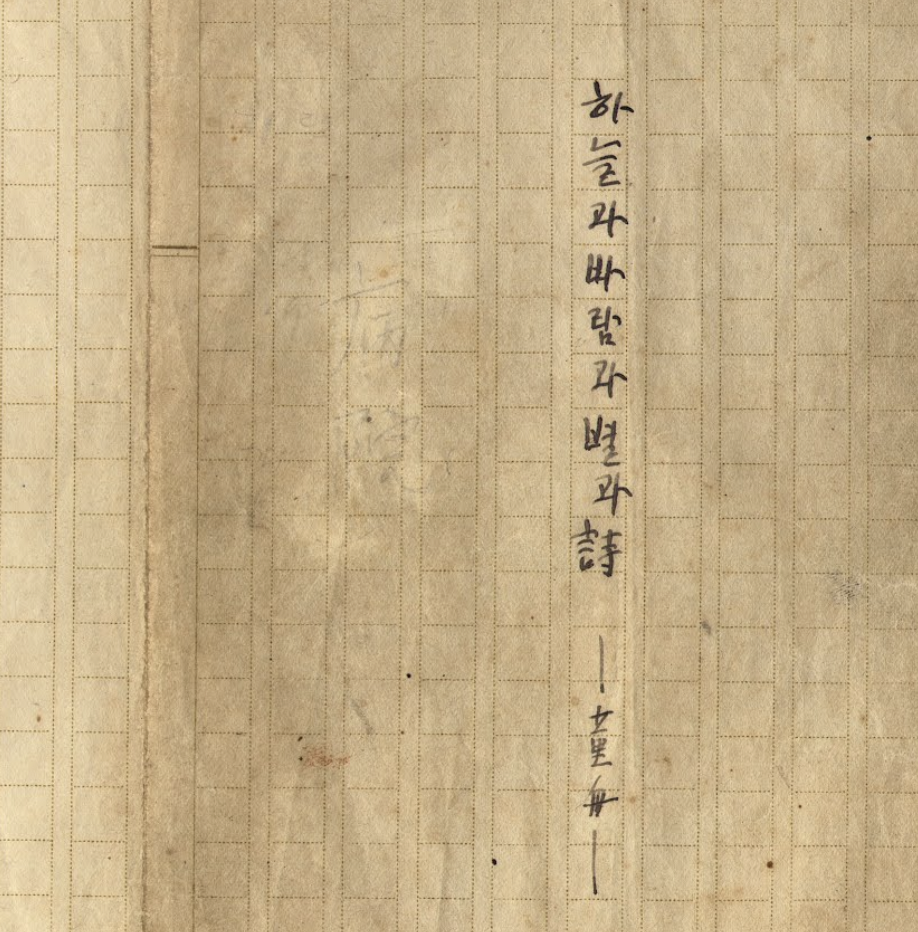 하늘과바람과별과詩 ―童舟―
病院